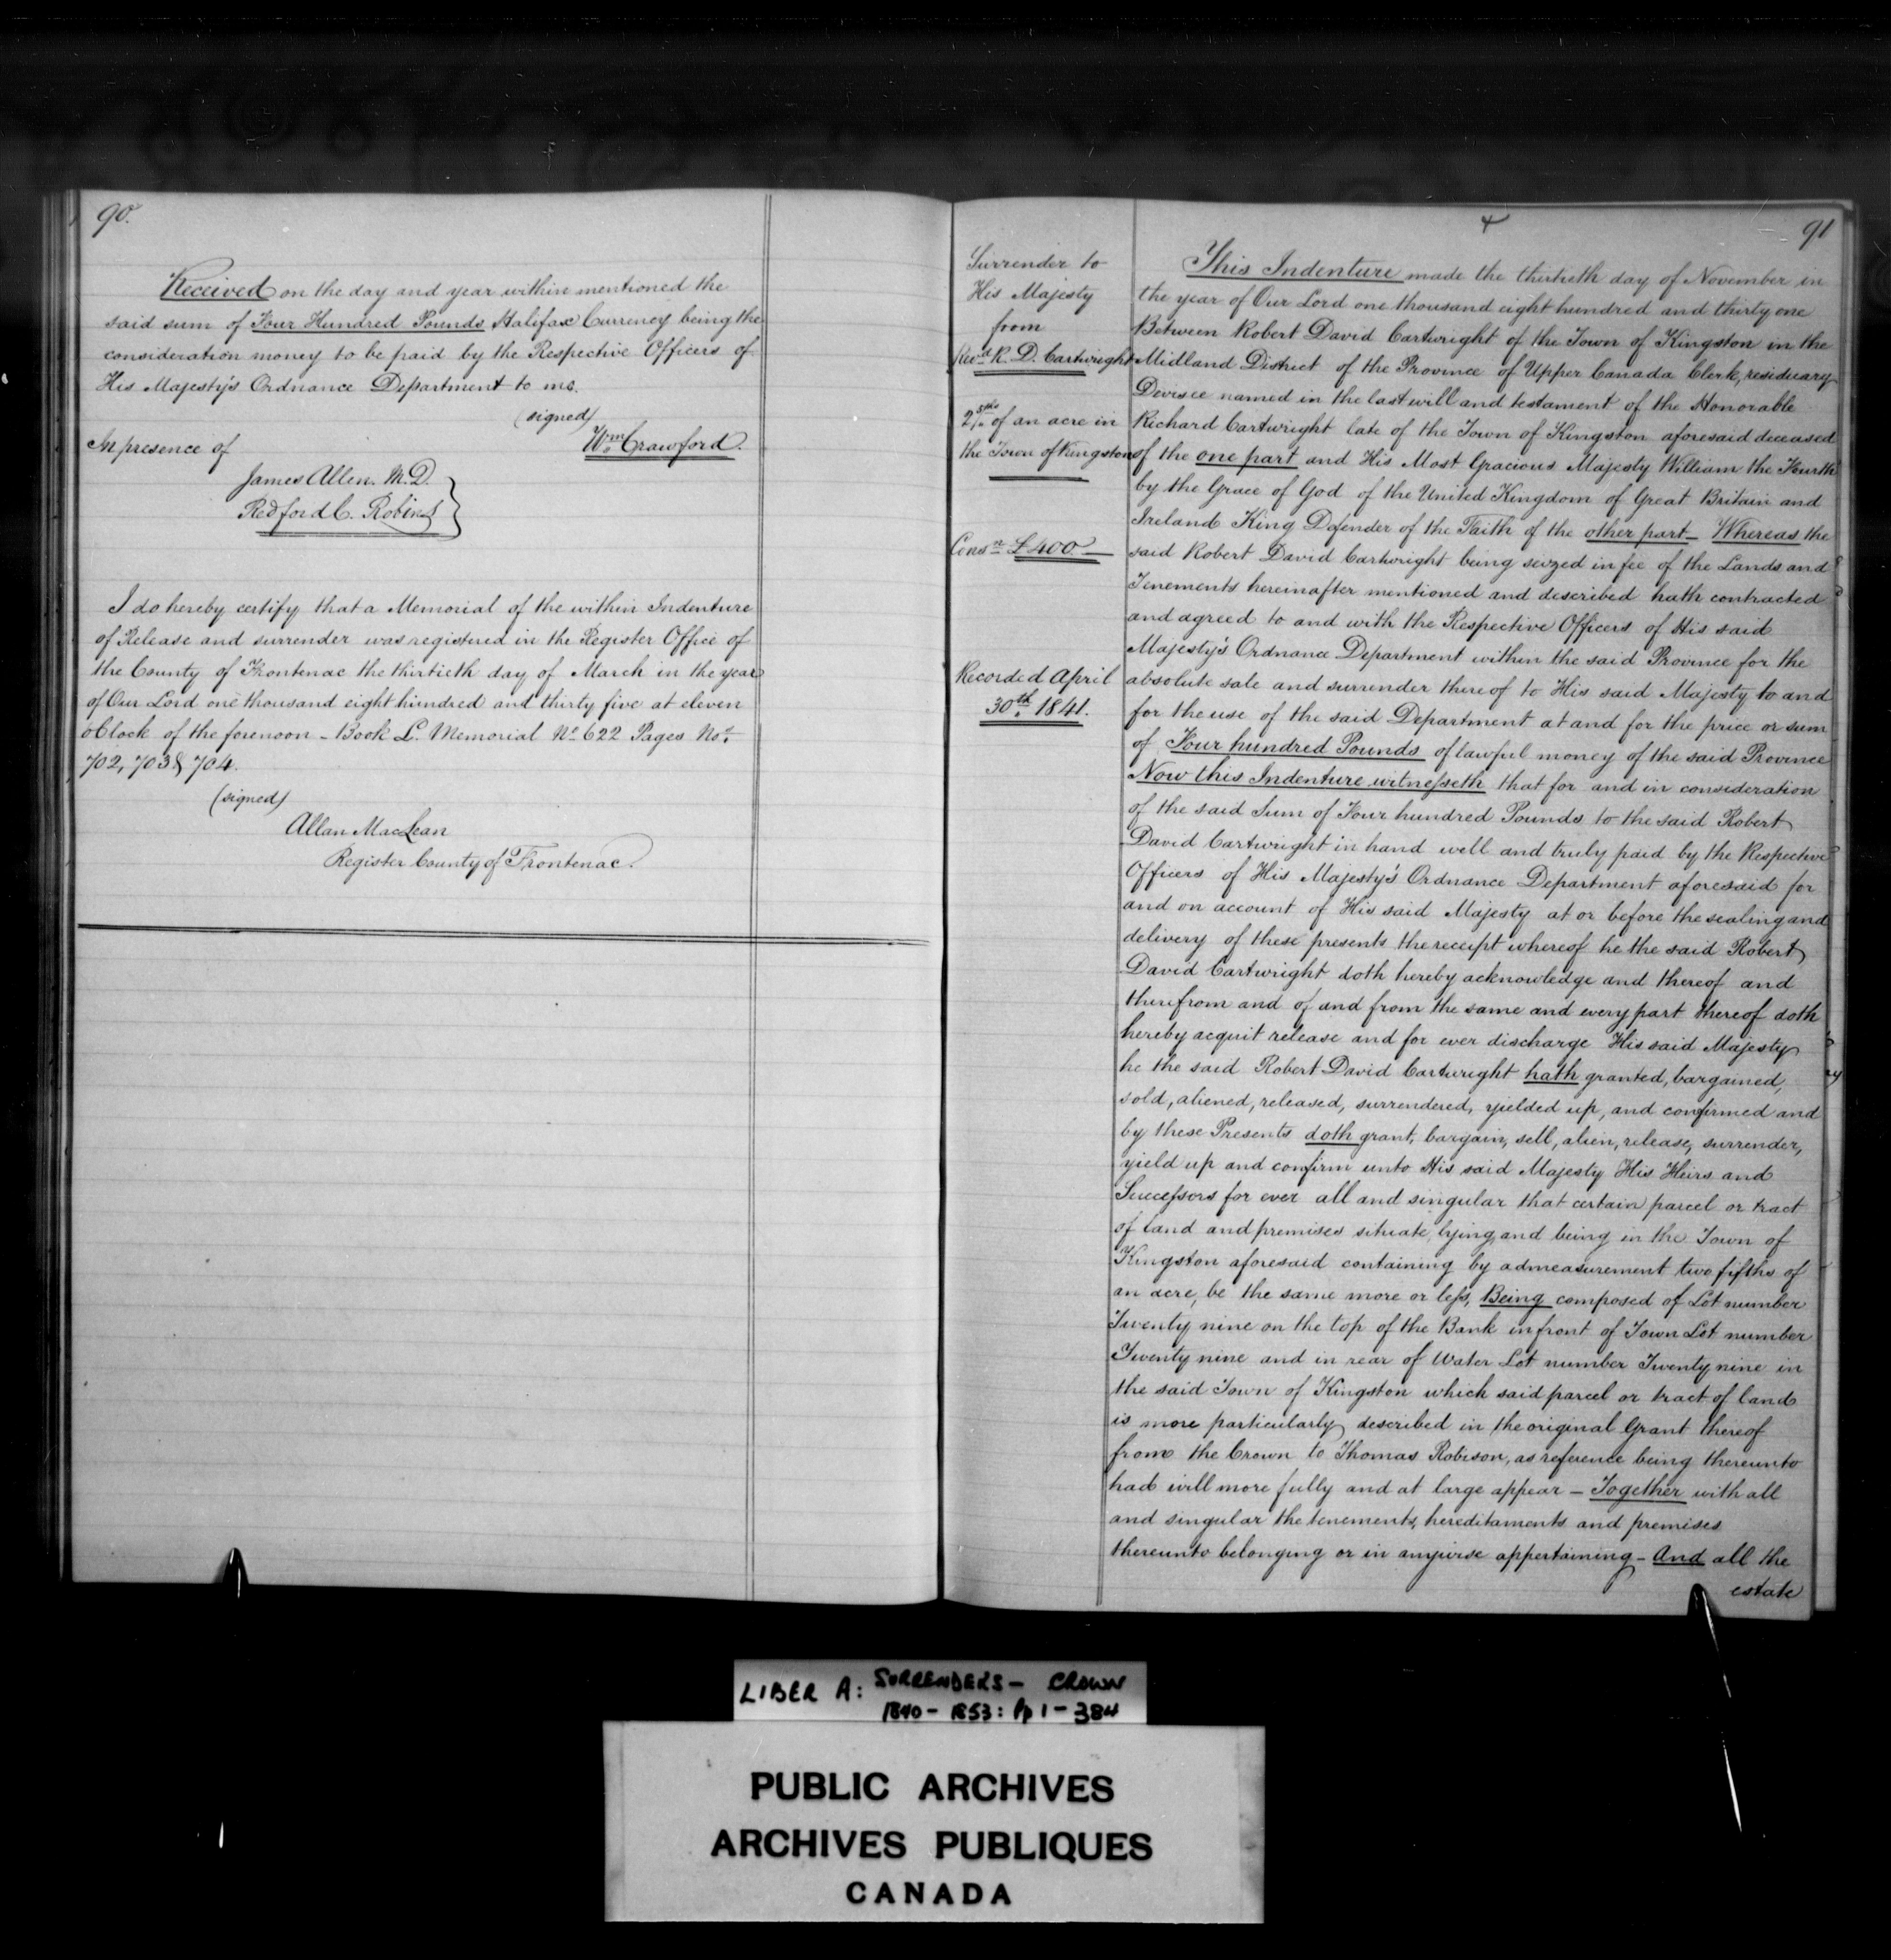 90.
Received on the day and year within mentioned the
said sum of Four Hundred Pounds Halifax Currency being the
consideration money to be paid by the Respective Officers of
His Majesty's Ordnance Department to me.
(signed)
Wm. Crawford.
In presence of
James Allen. M.D.
Redford C. Robins
I do hereby certify that a Memorial of the within Indenture
of Release and surrender was registered in the Register Office of
the County of Frontenac the thirtieth day of March in the year
of Our Lord one thousand eight hundred and thirty five at eleven
o'Clock of the forenoon - Book L. Memorial No 622 Pages Nos.
702, 703 & 704.
(signed)
Allan MacLean
Register County of Frontenac.
91
Surrender to
His Majesty
from
Revd R. D. Cartwright
2/5ths of an acre in
the Town of Kingston
Consn £400—
Recorded April
30th 1841.
This Indenture made the thirtieth day of November in
the year of Our Lord one thousand eight hundred and thirty one
Between Robert David Cartwright of the Town of Kingston in the
Midland District of the Province of Upper Canada Clerk, residuary
Devisee named in the last will and testament of the Honorable
Richard Cartwright late of the Town of Kingston aforesaid deceased
of the one part and His Most Gracious Majesty William the Fourth
by the Grace of God of the United Kingdom of Great Britain and
Ireland King Defender of the Faith of the other part - Whereas the
said Robert David Cartwright being seized in fee of the Lands and
Tenements hereinafter mentioned and described hath contracted
and agreed to and with the Respective Officers of His said
Majesty's Ordnance Department within the said Province for the
absolute sale and surrender thereof to His said Majesty to and
for the use of the said Department at and for the price or sum
of Four hundred Pounds of lawful money of the said Province
Now this Indenture witnesseth that for and in consideration
of the said Sum of Four hundred Pounds to the said Robert
David Cartwright in hand well and truly paid by the Respective
Officers of His Majesty's Ordnance Department aforesaid for
and on account of His said Majesty at or before the sealing and
delivery of these presents the receipt whereof he the said Robert
David Cartwright doth hereby acknowledge and thereof and
therefrom and of and from the same and every part thereof doth
hereby acquit release and for ever discharge His said Majesty
he the said Robert David Cartwright hath granted, bargained,
sold, aliened, released, surrendered, yielded up, and confirmed and
by these Presents doth grant, bargain, sell, alien, release, surrender,
yield up and confirm unto His said Majesty His Heirs and
Successors for ever all and singular that certain parcel or tract
of land and premises situate, lying and being in the Town of
Kingston aforesaid containing by admeasurement two fifths of
an acre, be the same more or less, Being composed of Lot number
Twenty nine on the top of the Bank in front of Town Lot number
Twenty nine and in rear of Water Lot number Twenty nine in
the said Town of Kingston which said parcel or tract of land
is more particularly described in the original Grant thereof
from the Crown to Thomas Robison, as reference being thereunto
had will more fully and at large appear - Together with all
and singular the tenements, hereditaments and premises
thereunto belonging or in anywise appertaining - And all the
estate
LIBER A: SURRENDERS - CROWN
1840 - 1853: Pp 1 - 384
PUBLIC ARCHIVES
ARCHIVES PUBLIQUES
CANADA